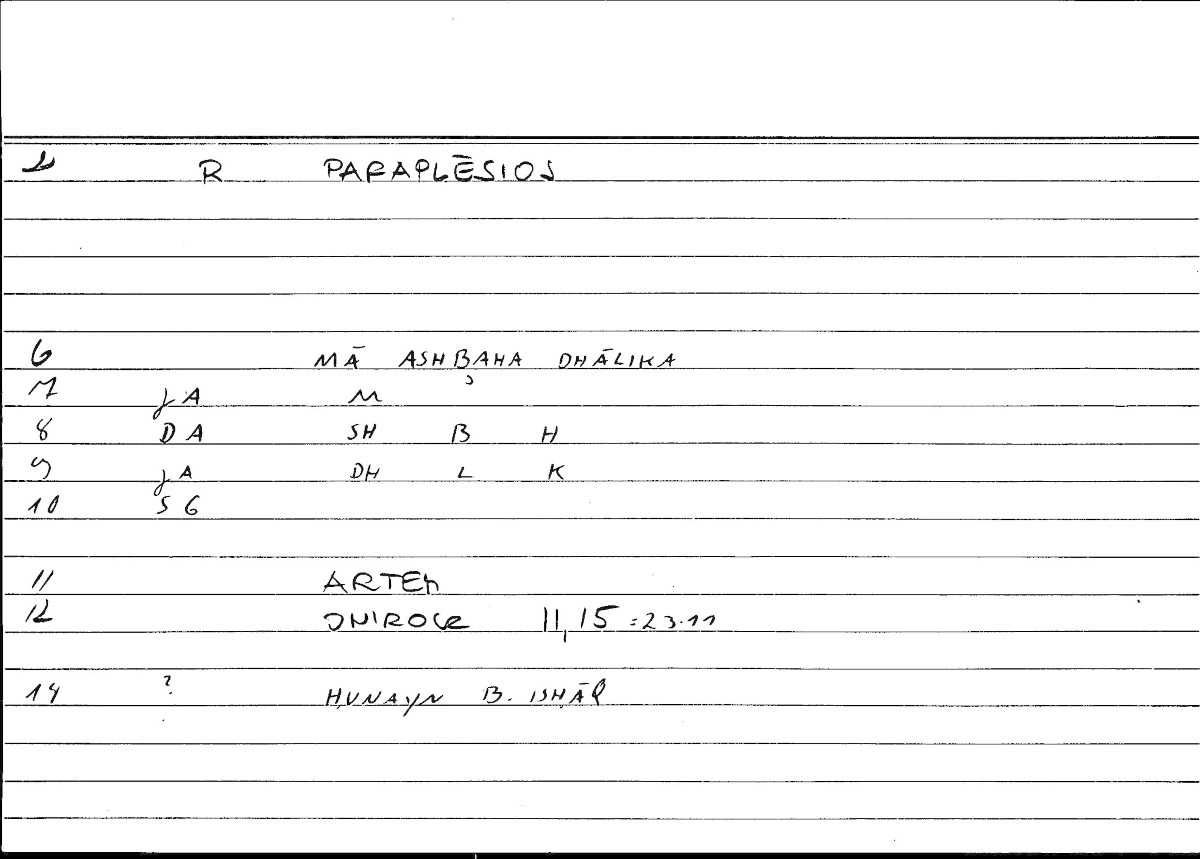 1 R PARAPLĒSIOS
6 MĀ ASHBAHA DHĀLIKA
7 JA M
8 DA SH B H
9 JA DH L K
10 SG
11 ARTEM
12 ONIROCR 11,15 = 23.11
14 ? ḤUNAYN B. ISḤĀQ